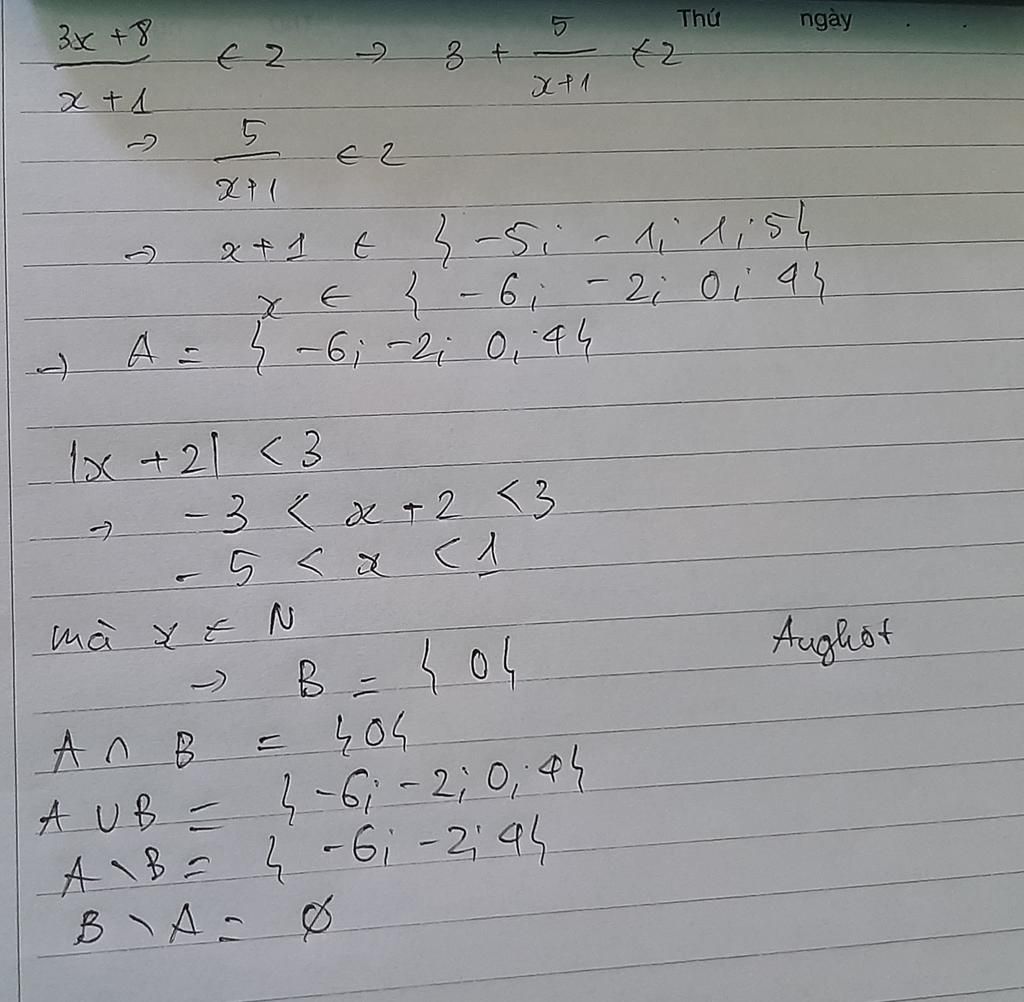 Thứ ngày . .
3x + 8 / x + 1 ∈ Z → 3 + 5 / x+1 ∈ Z
→ 5 / x+1 ∈ Z
→ x + 1 ∈ { -5; -1; 1; 5}
x ∈ { -6; -2; 0; 4}
→ A = { -6; -2; 0; 4}
|x + 2| < 3
→ -3 < x + 2 < 3
-5 < x < 1
mà x ∈ N
Aughot
→ B = { 0}
A ∩ B = {0}
A ∪ B = { -6; -2; 0; 4}
A \ B = { -6; -2; 4}
B \ A = ∅